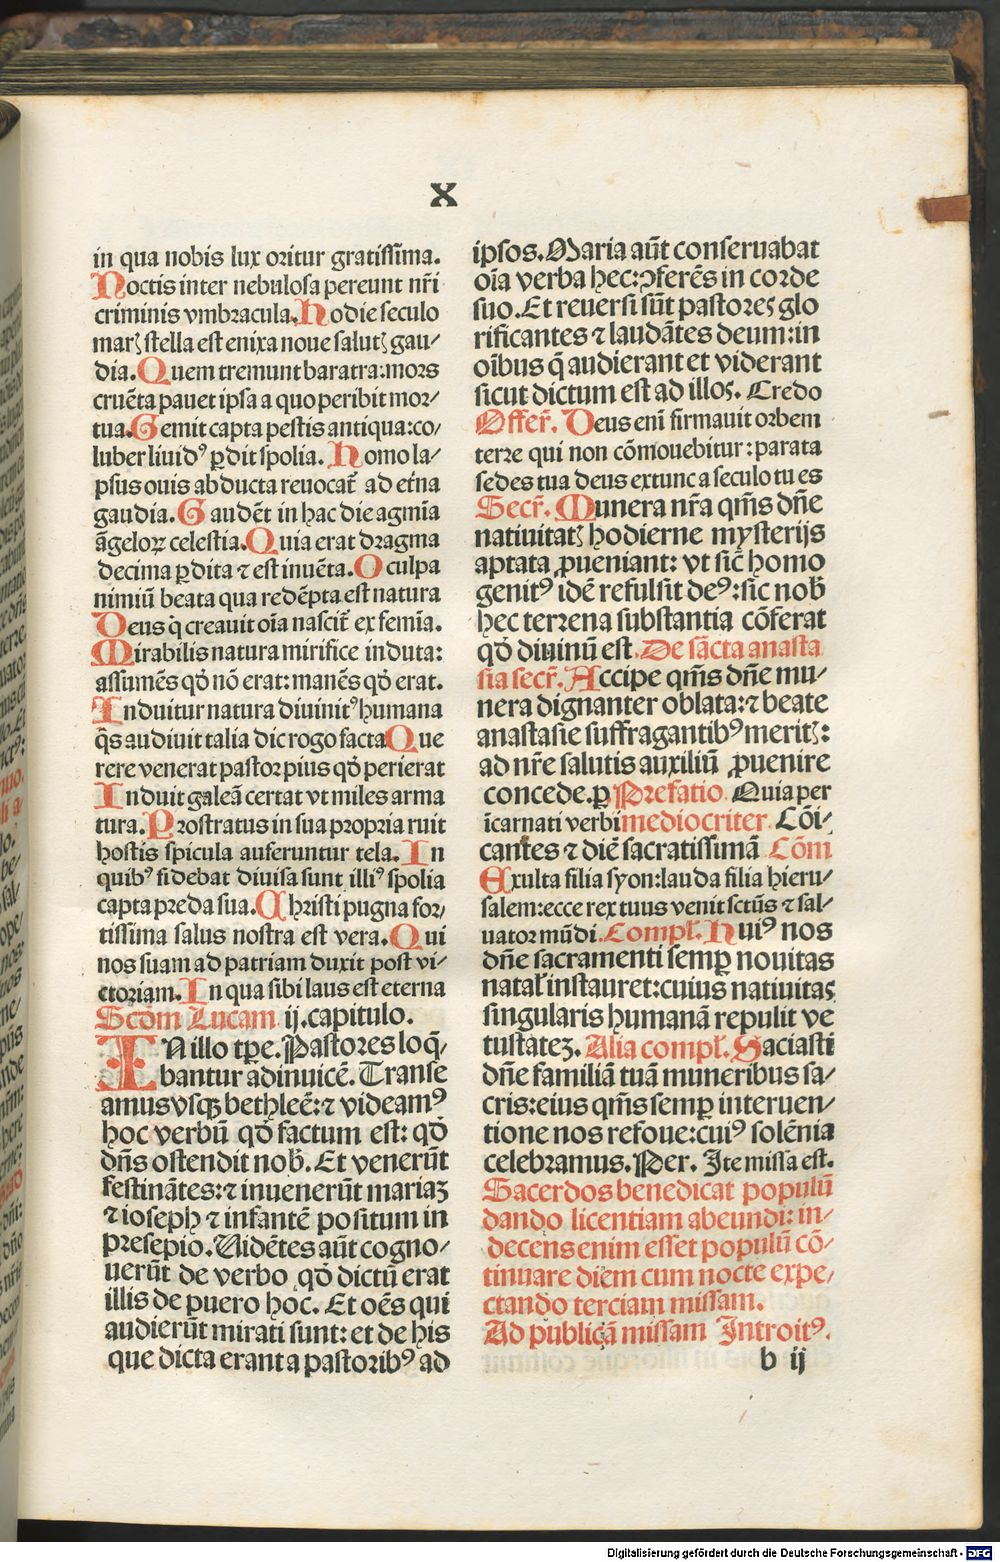 X
in qua nobis lux oritur gratissīma.
Noctis inter nebulosa pereunt nr̄i
criminis vmbracula. Hodie seculo
marꝭ stella est enixa noue salutꝭ gau/
dia. Quem tremunt baratra: mors
cruēta pauet ipsa a quo peribit mor/
tua. Gemit capta pestis antiqua: co/
luber liuidꝰ ꝑdit spolia. Homo la/
psus ouis abducta reuocat̄ ad et̄na
gaudia. Gaudēt in hac die agmīa
āgeloꝝ celestia. Quia erat dragma
decima ꝑdita ⁊ est inuēta. O culpa
nimiū beata qua redēpta est natura
Deus q̇ creauit oīa nascit̄ ex femīa.
Mirabilis natura mirifice induta:
assumēs qd̓ nō erat: manēs qd̓ erat.
Induitur natura diuinitꝰ humana
q̄s audiuit talia dic rogo facta Que
rere venerat pastor pius qd̓ perierat
Induit galeā certat vt miles arma
tura. Prostratus in sua propria ruit
hostis spicula auferuntur tela. In
quibꝰ fidebat diuisa sunt illiꝰ spolia
capta preda sua. Christi pugna for/
tissima salus nostra est vera. Qui
nos suam ad patriam duxit post vi/
ctoriam. In qua sibi laus est eterna
Scd̓m Lucam ij. capitulo.
IN illo tꝑe. Pastores loq̄/
bantur adinuicē. Transe
amus vsqꝫ bethleē: ⁊ videamꝰ
hoc verbū qd̓ factum est: qd̓
dn̄s ostendit nob̓. Et venerūt
festinātes: ⁊ inuenerūt mariaꝫ
⁊ ioseph ⁊ infantē positum in
presepio. Vidētes aūt cogno/
uerūt de verbo qd̓ dictū erat
illis de puero hoc. Et oēs qui
audierūt mirati sunt: et de his
que dicta erant a pastoribꝰ ad
ipsos. Maria aūt conseruabat
oīa verba hec: ꝯferēs in corde
suo. Et reuersi sūt pastores glo
rificantes ⁊ laudātes deum: in
oībus q̄ audierant et viderant
sicut dictum est ad illos. Credo
Offer̄. Deus enī firmauit orbem
terre qui non cōmouebitur: parata
sedes tua deus ex tunc a seculo tu es
Secr̄. Munera nr̄a qm̄s dn̄e
natiuitatꝭ hodierne mysterijs
aptata ꝓueniant: vt sic̄ homo
genitꝰ idē refulsit deꝰ: sic nob̓
hec terrena substantia cōferat
qd̓ diuinū est. De sācta anasta
sia secr̄. Accipe qm̄s dn̄e mu/
nera dignanter oblata: ⁊ beate
anastasie suffragantibꝰ meritꝭ:
ad nr̄e salutis auxiliū ꝓuenire
concede. ꝑ Prefatio. Quia per
īcarnati verbi mediocriter. Cōi/
cantes ⁊ diē sacratissimā Cōm
Exulta filia syon: lauda filia hieru/
salem: ecce rex tuus venit sctūs ⁊ sal/
uator mūdi. Compl̓. Huiꝰ nos
dn̄e sacramenti semꝑ nouitas
natal̓ instauret: cuius natiuitas
singularis humanā repulit ve
tustateꝫ. Alia compl̓. Saciasti
dn̄e familiā tuā muneribus sa/
cris: eius qm̄s semꝑ interuen/
tione nos refoue: cuiꝰ solēnia
celebramus. Per. Ite missa est.
Sacerdos benedicat populū
dando licentiam abeundi: in/
decens enim esset populū cō/
tinuare diem cum nocte expe/
ctando terciam missam.
Ad publicā missam Introitꝰ.
b ij
Digitalisierung gefördert durch die Deutsche Forschungsgemeinschaft - DFG